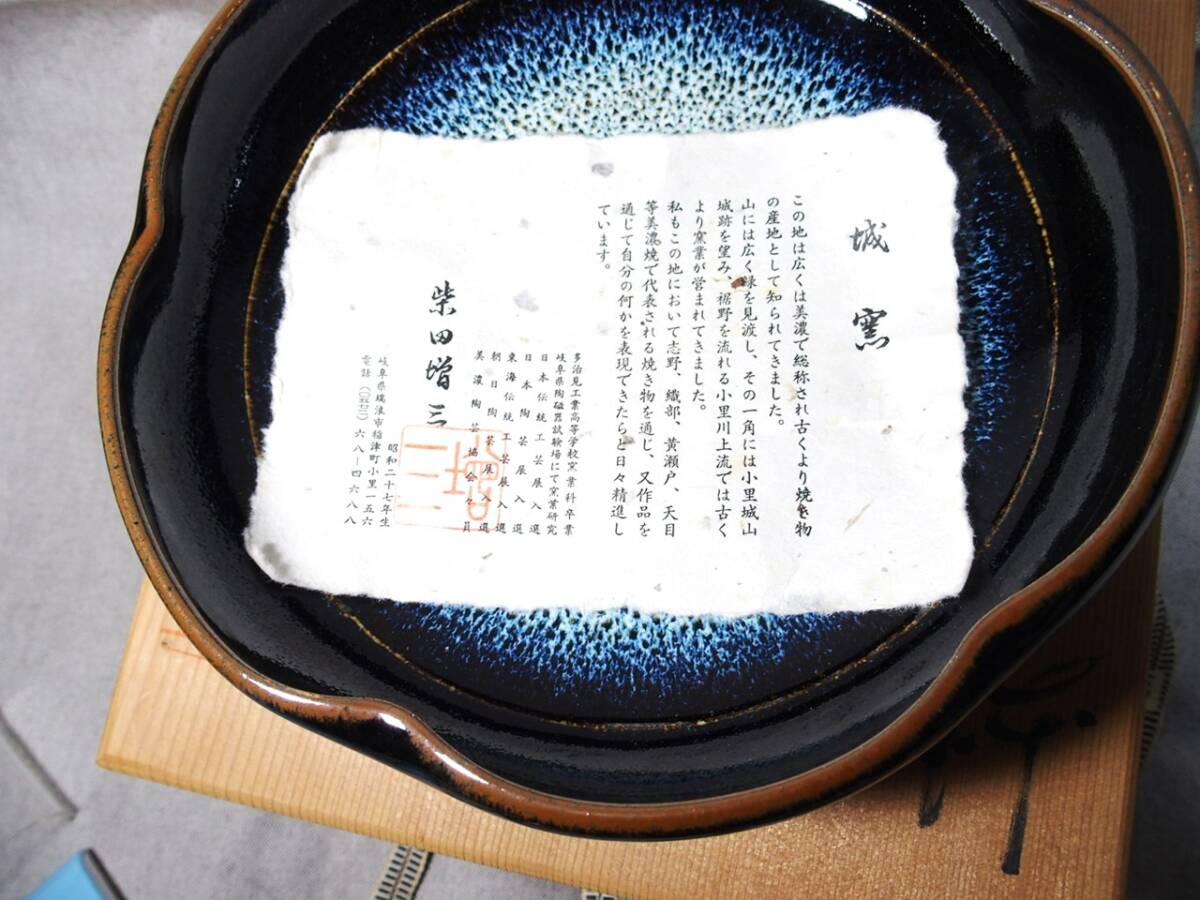 城窯
この地は広くは美濃で総称され古くより焼き物
の産地として知られてきました。
山には広く緑を見渡し、その一角には小里城山
城跡を望み、裾野を流れる小里川上流では古く
より窯業が営まれてきました。
私もこの地において志野、織部、黄瀬戸、天目
等美濃焼で代表される焼き物を通じ、又作品を
通じて自分の何かを表現できたらと日々精進し
ています。
多治見工業高等学校窯業科卒業
岐阜県陶磁器試験場にて窯業研究
日本伝統工芸展入選
日本陶芸展入選
東海伝統工芸展入選
朝日陶芸展入選
美濃陶芸協会々員
柴田増三
昭和二十七年生
岐阜県瑞浪市稲津町小里一五六
電話 六八ー四六八八